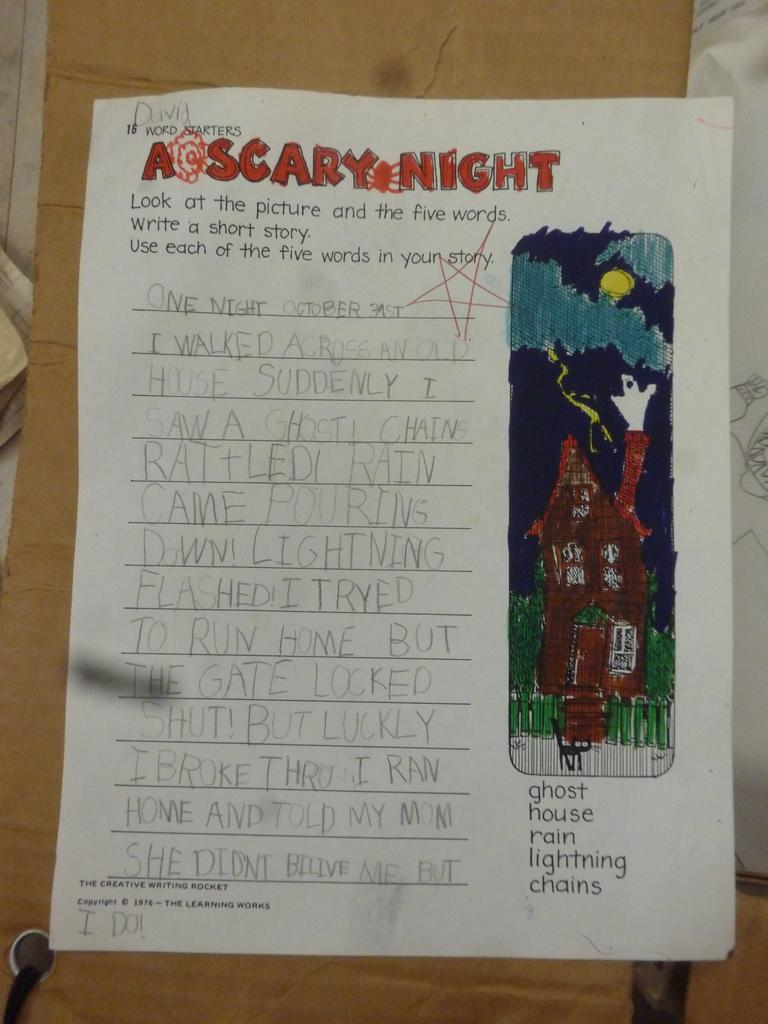 David
16 WORD STARTERS
A SCARY NIGHT
Look at the picture and the five words.
Write a short story.
Use each of the five words in your story.
ONE NIGHT OCTOBER 31ST
I WALKED ACROSS AN OLD
HOUSE. SUDDENLY I
SAW A GHOST! CHAINS
RATTLED! RAIN
CAME POURING
DOWN! LIGHTNING
FLASHED! I TRYED
TO RUN HOME BUT
THE GATE LOCKED
SHUT! BUT LUCKLY
I BROKE THRU. I RAN
HOME AND TOLD MY MOM
SHE DIDNT BILIVE ME BUT
I DO!
ghost
house
rain
lightning
chains
THE CREATIVE WRITING ROCKET
Copyright © 1976 — THE LEARNING WORKS